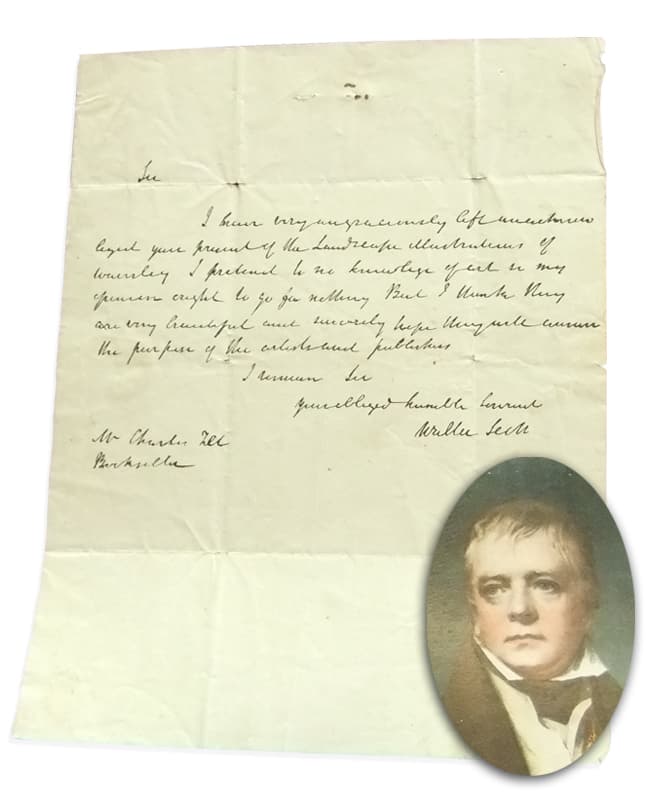 Sir
I have very ungraciously left unacknow
leged your present of the Landscape illustrations of
Waverley I pretend to no knowledge of art so my
opinion ought to go for nothing But I think they
are very beautiful and sincerely hope they will answer
the purpose of the artists and publishers
I remain Sir
Your obliged humble Servant
Walter Scott
Mr Charles Tilt
Bookseller